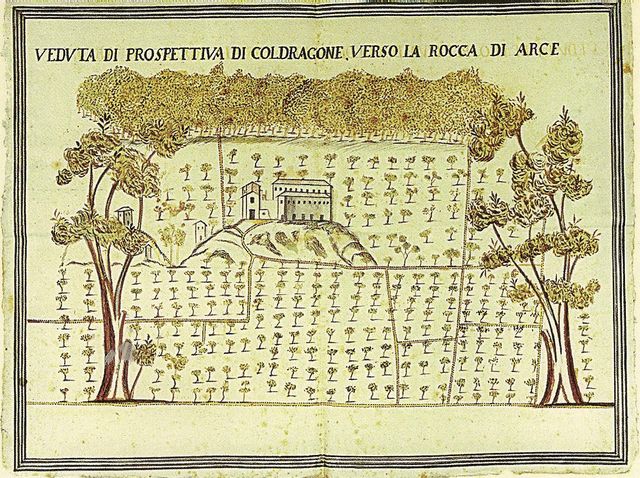 VEDUTA DI PROSPETTIVA DI COLDRAGONE VERSO LA ROCCA DI ARCE